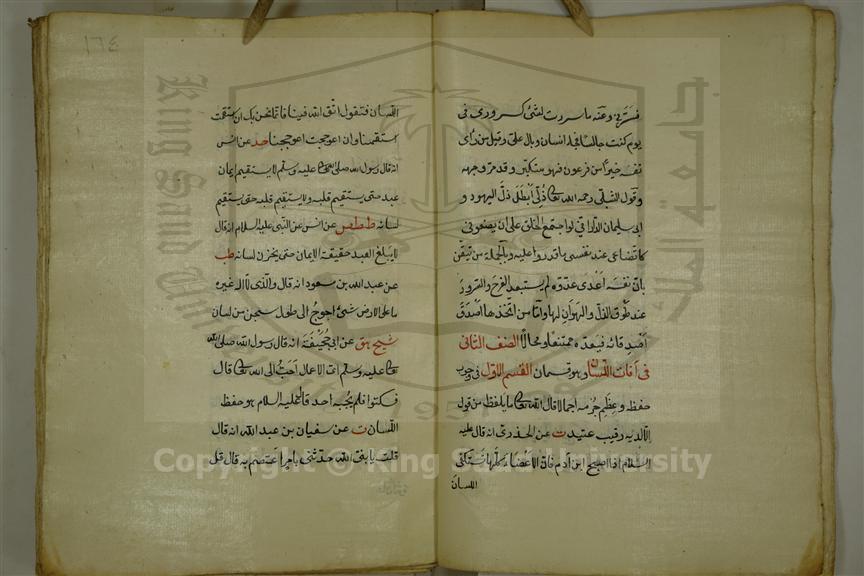 فسترني وعنه ما سررت لشئ كسروري في
يوم كنت جالسا فجاء انسان وبال علي وقيل من رأى
نفسه خيرا من فرعون فهو متكبر وقد مر وجهه
وقول الشبلي رحمه الله تعالى ذلي أبطل ذل اليهود و
ابي سليمان الداراني لو اجتمع الخلق على ان يضعوني
كاتضاعي عند نفسي ما قدروا عليه وبالجملة من تيقن
بان نفسه أعدى عدوه لم يستبعد الفرح والسرور
عند طوق الذل والهوان لها واما من اتخذها أصدق
أصدقائه فيعده ممتنعا ومحالا الصنف الثاني
في آفات اللسان وهو قسمان القسم الاول في وجوب
حفظه وعظيم جرمه اجمالا قال الله تعالى ما يلفظ من قول
الا لديه رقيب عتيد ت عن الخدري انه قال عليه
السلام اذا اصبح ابن آدم فان الاعضاء كلها تستكفي
اللسان
١٦٤
اللسان فتقول اتق الله فينا فانما نحن بك ان استقمت
استقمنا وان اعوججت اعوججنا حد عن انس
انه قال رسول الله صلى الله تعالى عليه وسلم لا يستقيم ايمان
عبد حتى يستقيم قلبه ولا يستقيم قلبه حتى يستقيم
لسانه ط طص عن انس عن النبي عليه السلام انه قال
لا يبلغ العبد حقيقة الايمان حتى يخزن لسانه طب
عن عبد الله بن مسعود انه قال والذي لا اله غيره
ما على الارض شئ احوج الى طول سجن من لسان
شيخ هق عن ابي جحيفة انه قال رسول الله صلى الله
تعالى عليه وسلم اي الاعمال احب الى الله تعالى قال
فسكتوا فلم يجبه احد قال عليه السلام هو حفظ
اللسان ت عن سفيان بن عبد الله انه قال
قلت يا نبي الله حدثني بامر اعتصم به قال قل
King Saud University
جامعة الملك
195
Copyright © King Saud University